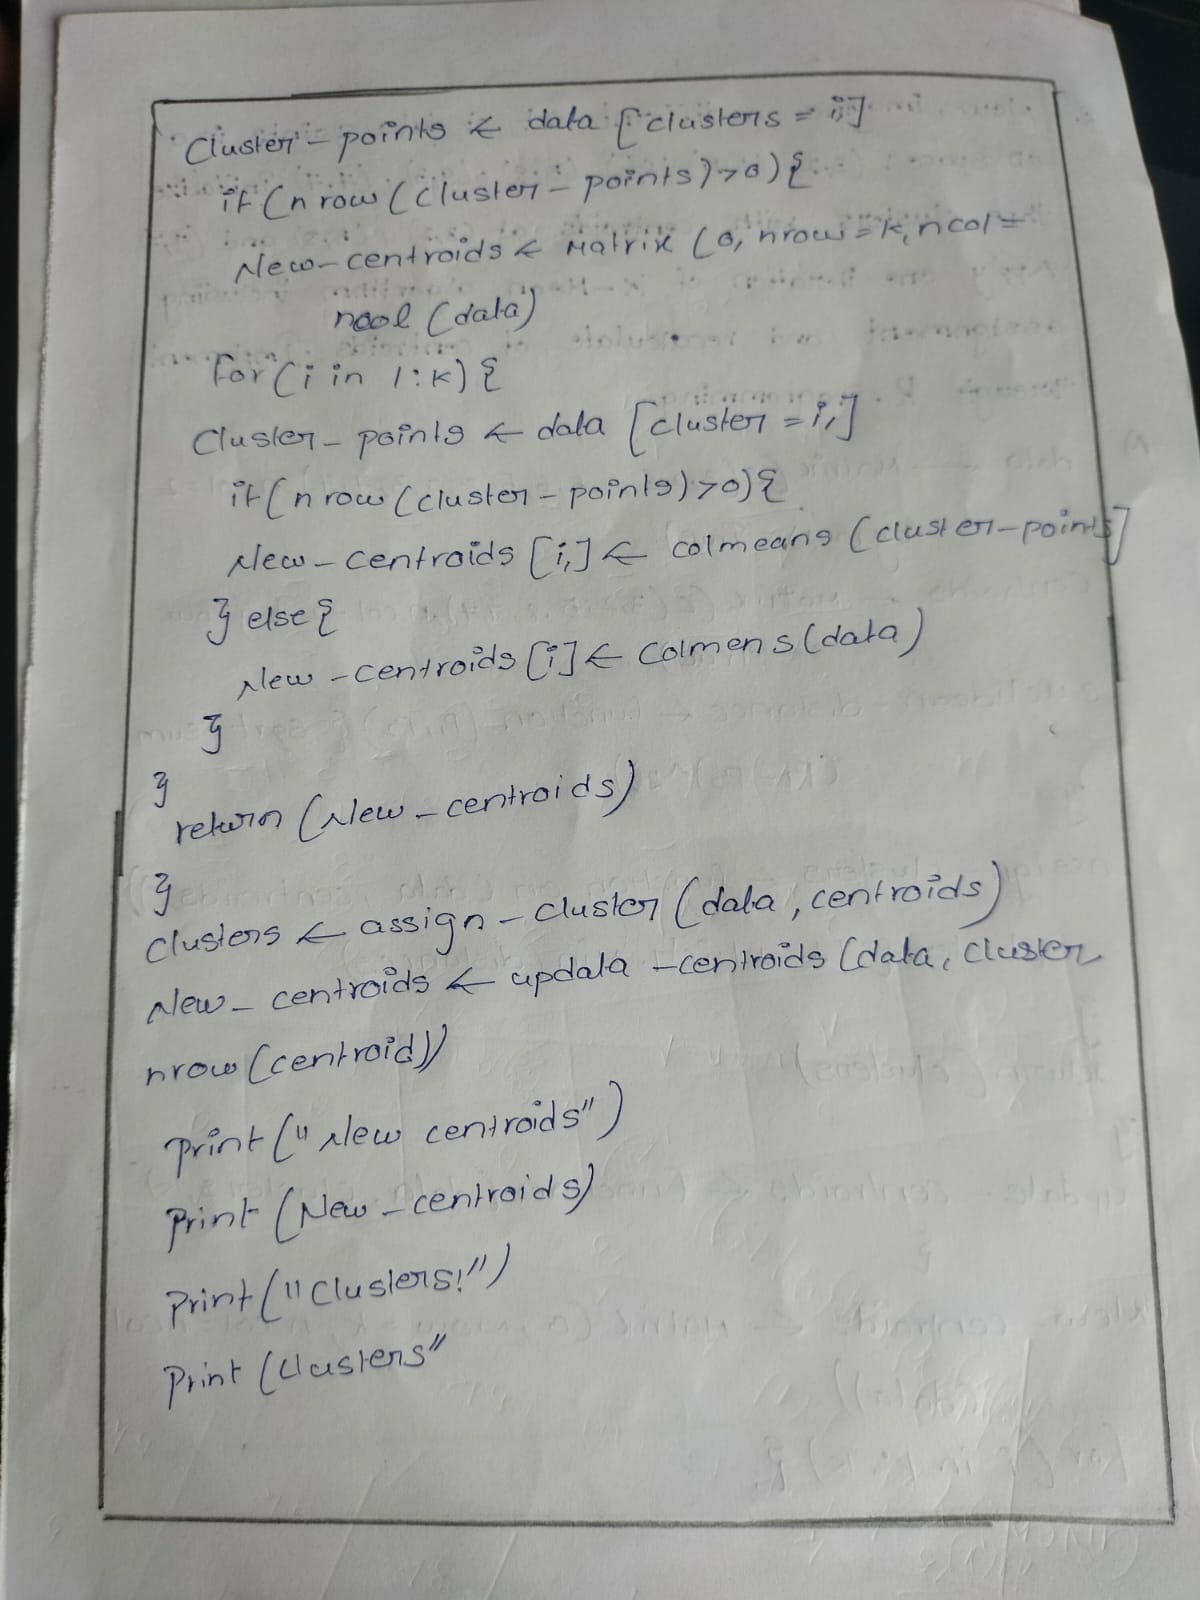 Cluster - points ← data [clusters = i,]
if (nrow (cluster - points) > 0) {
New - centroids ← Matrix (0, nrow = k, ncol =
ncol (data)
For (i in 1:k) {
Cluster - points ← data [cluster = i,]
if (nrow (cluster - points) > 0) {
New - centroids [i,] ← colmeans (cluster - points]
} else {
New - centroids [i] ← Colmens (data)
}
}
return (New - centroids)
}
clusters ← assign - cluster (data, centroids)
New - centroids ← updata - centroids (data, cluster,
nrow (centroid))
Print (" New centroids")
Print (New - centroids)
Print (" Clusters!")
Print (Clusters"